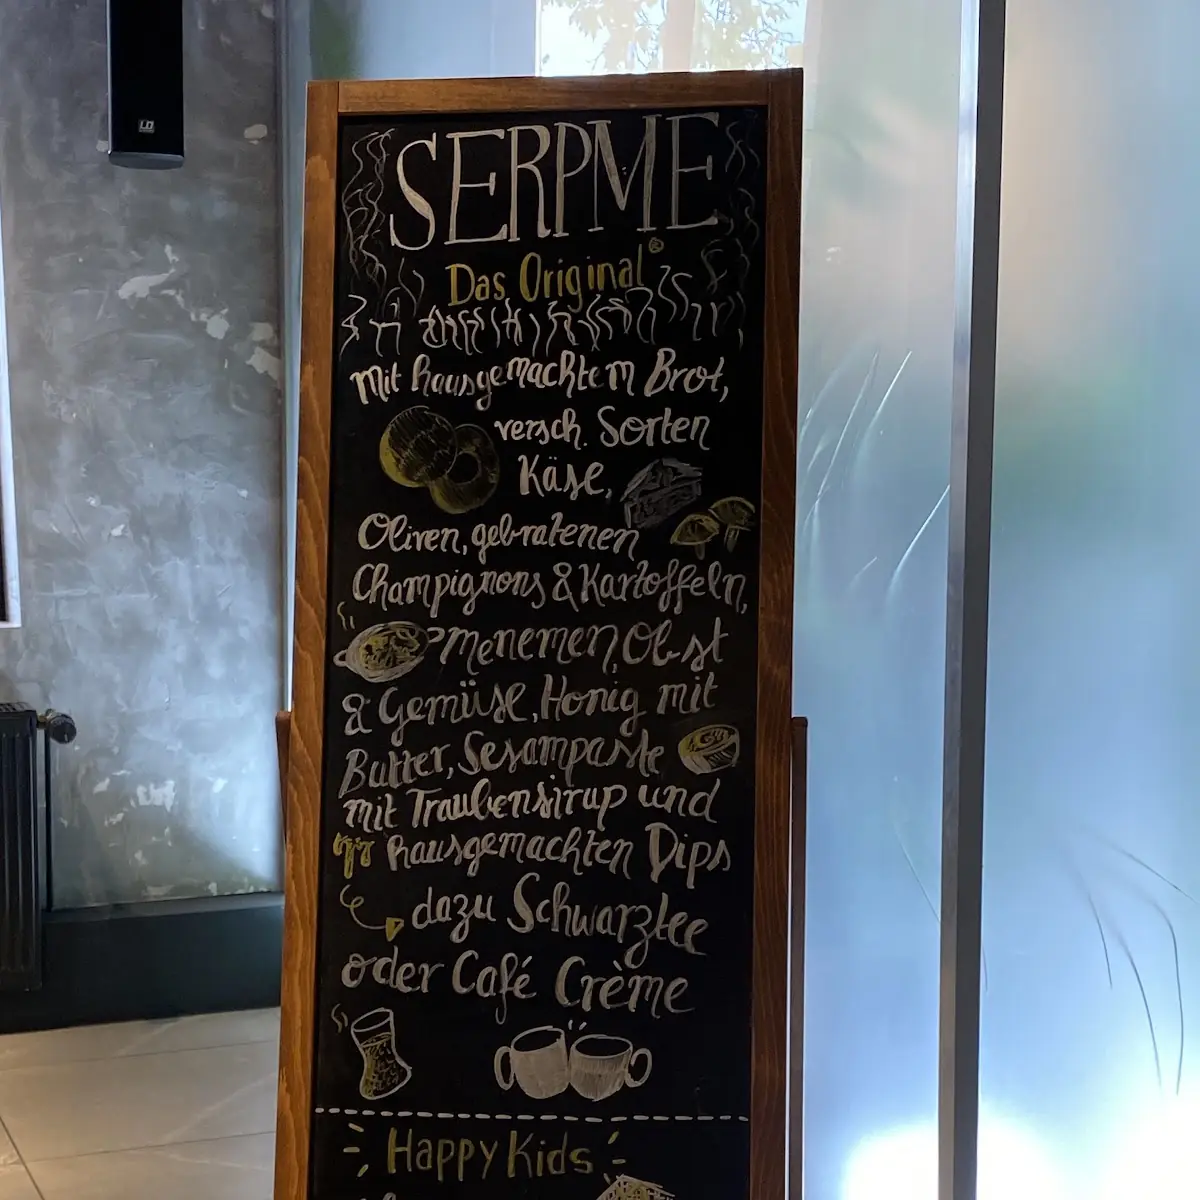 LD
SERPME
Das Original®
Mit hausgemachtem Brot,
versch. Sorten
Käse,
Oliven, gebratenen
Champignons & Kartoffeln,
Menemen, Obst
& Gemüse, Honig mit
Butter, Sesampaste
mit Traubensirup und
hausgemachten Dips
dazu Schwarztee
oder Café Crème
Happy Kids